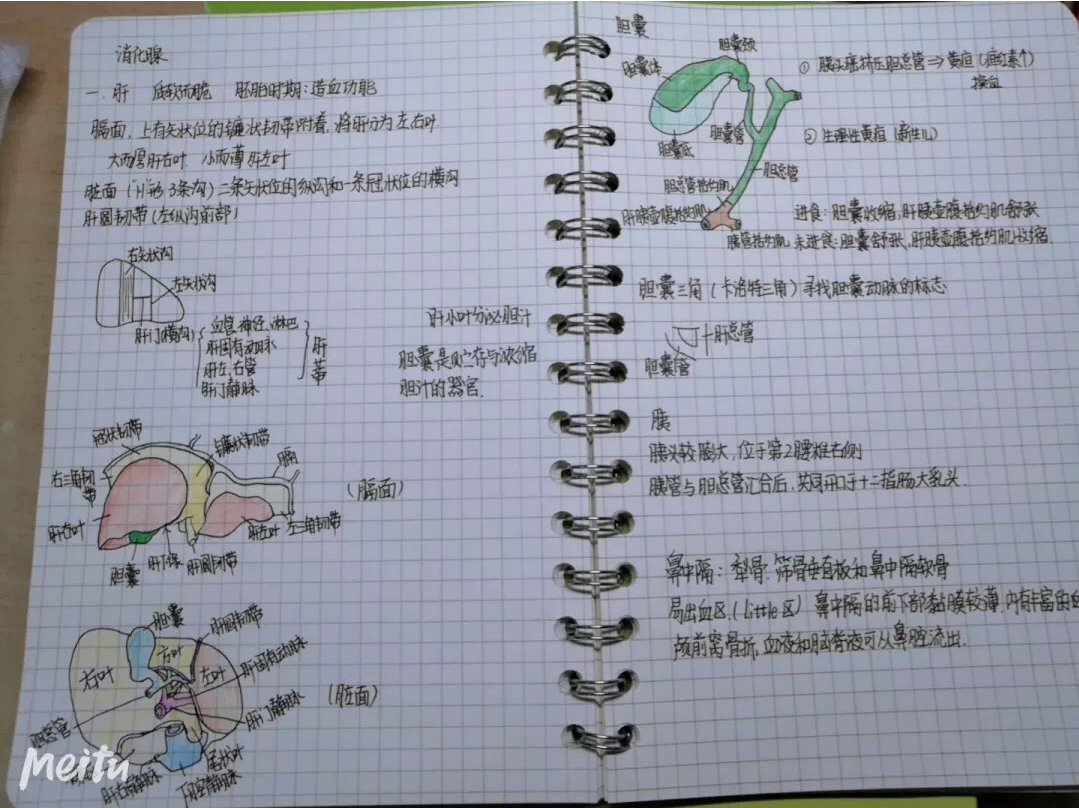 消化腺
一.肝 质软而脆 胚胎时期:造血功能
膈面,上有矢状位的镰状韧带附着,将肝分为左右叶.
大而厚肝右叶 小而薄肝左叶
脏面("H"形3条沟)二条矢状位的纵沟和一条冠状位的横沟
肝圆韧带(左纵沟前部)
右矢状沟
左矢状沟
肝门(横沟)
血管,神经,淋巴
肝固有动脉
肝左,右管
肝门静脉
肝蒂
肝小叶分泌胆汁
胆囊是贮存与浓缩
胆汁的器官.
冠状韧带
镰状韧带
膈
右三角韧带
(膈面)
肝右叶
肝左叶
左三角韧带
胆囊
肝下缘
肝圆韧带
胆囊
肝圆韧带
方叶
肝固有动脉
右叶
左叶
(脏面)
肝门静脉
胆总管
尾状叶
肝右静脉
下腔静脉
Meitu
胆囊
胆囊颈
胆囊体
① 胰头癌挤压胆总管⇒黄疸(胆红素↑)
换血
胆囊管
② 生理性黄疸(新生儿)
胆囊底
胆总管
胆总管括约肌
肝胰壶腹括约肌
进食:胆囊收缩,肝胰壶腹括约肌舒张
胰管括约肌
未进食:胆囊舒张,肝胰壶腹括约肌收缩.
胆囊三角(卡洛特三角)寻找胆囊动脉的标志
肝总管
胆囊管
胰
胰头较膨大,位于第2腰椎右侧
胰管与胆总管汇合后,共同开口于十二指肠大乳头.
鼻中隔:犁骨.筛骨垂直板和鼻中隔软骨
易出血区(Little区) 鼻中隔的前下部黏膜较薄,内有丰富的血
颅前窝骨折,血液和脑脊液可从鼻腔流出.